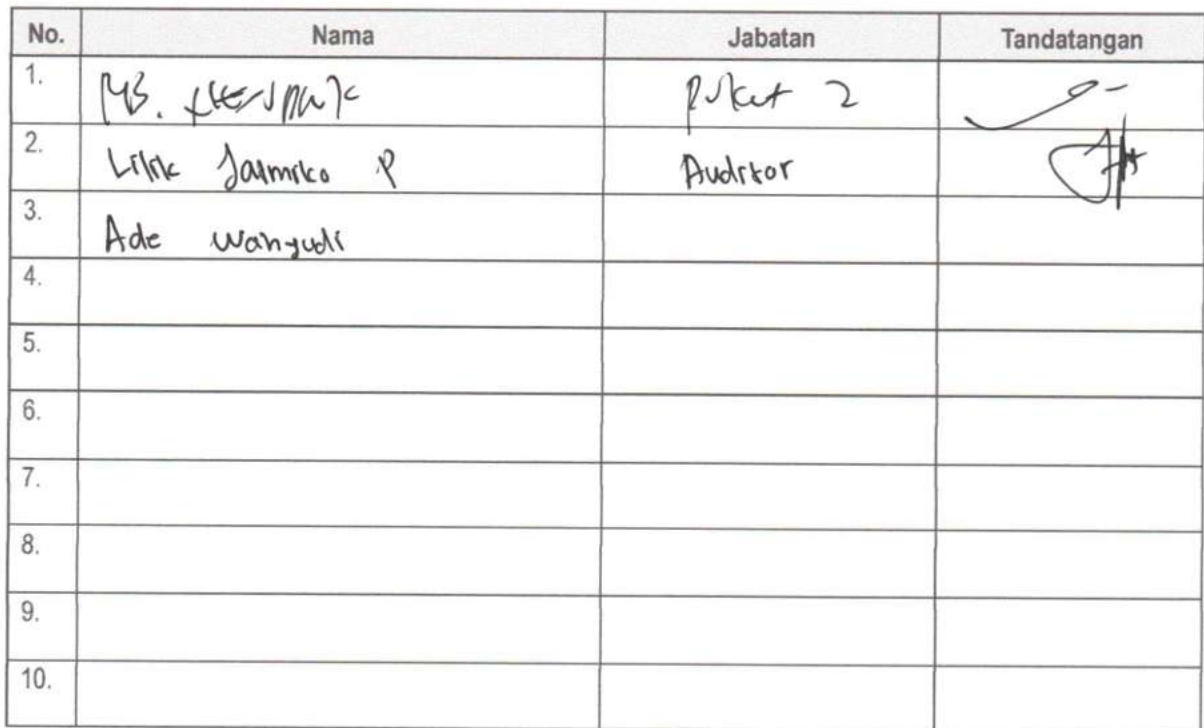 No. Nama Jabatan Tandatangan
1. 2
2. Lilik Jatmiko P Auditor
3. Ade Wahyudi
4.
5.
6.
7.
8.
9.
10.